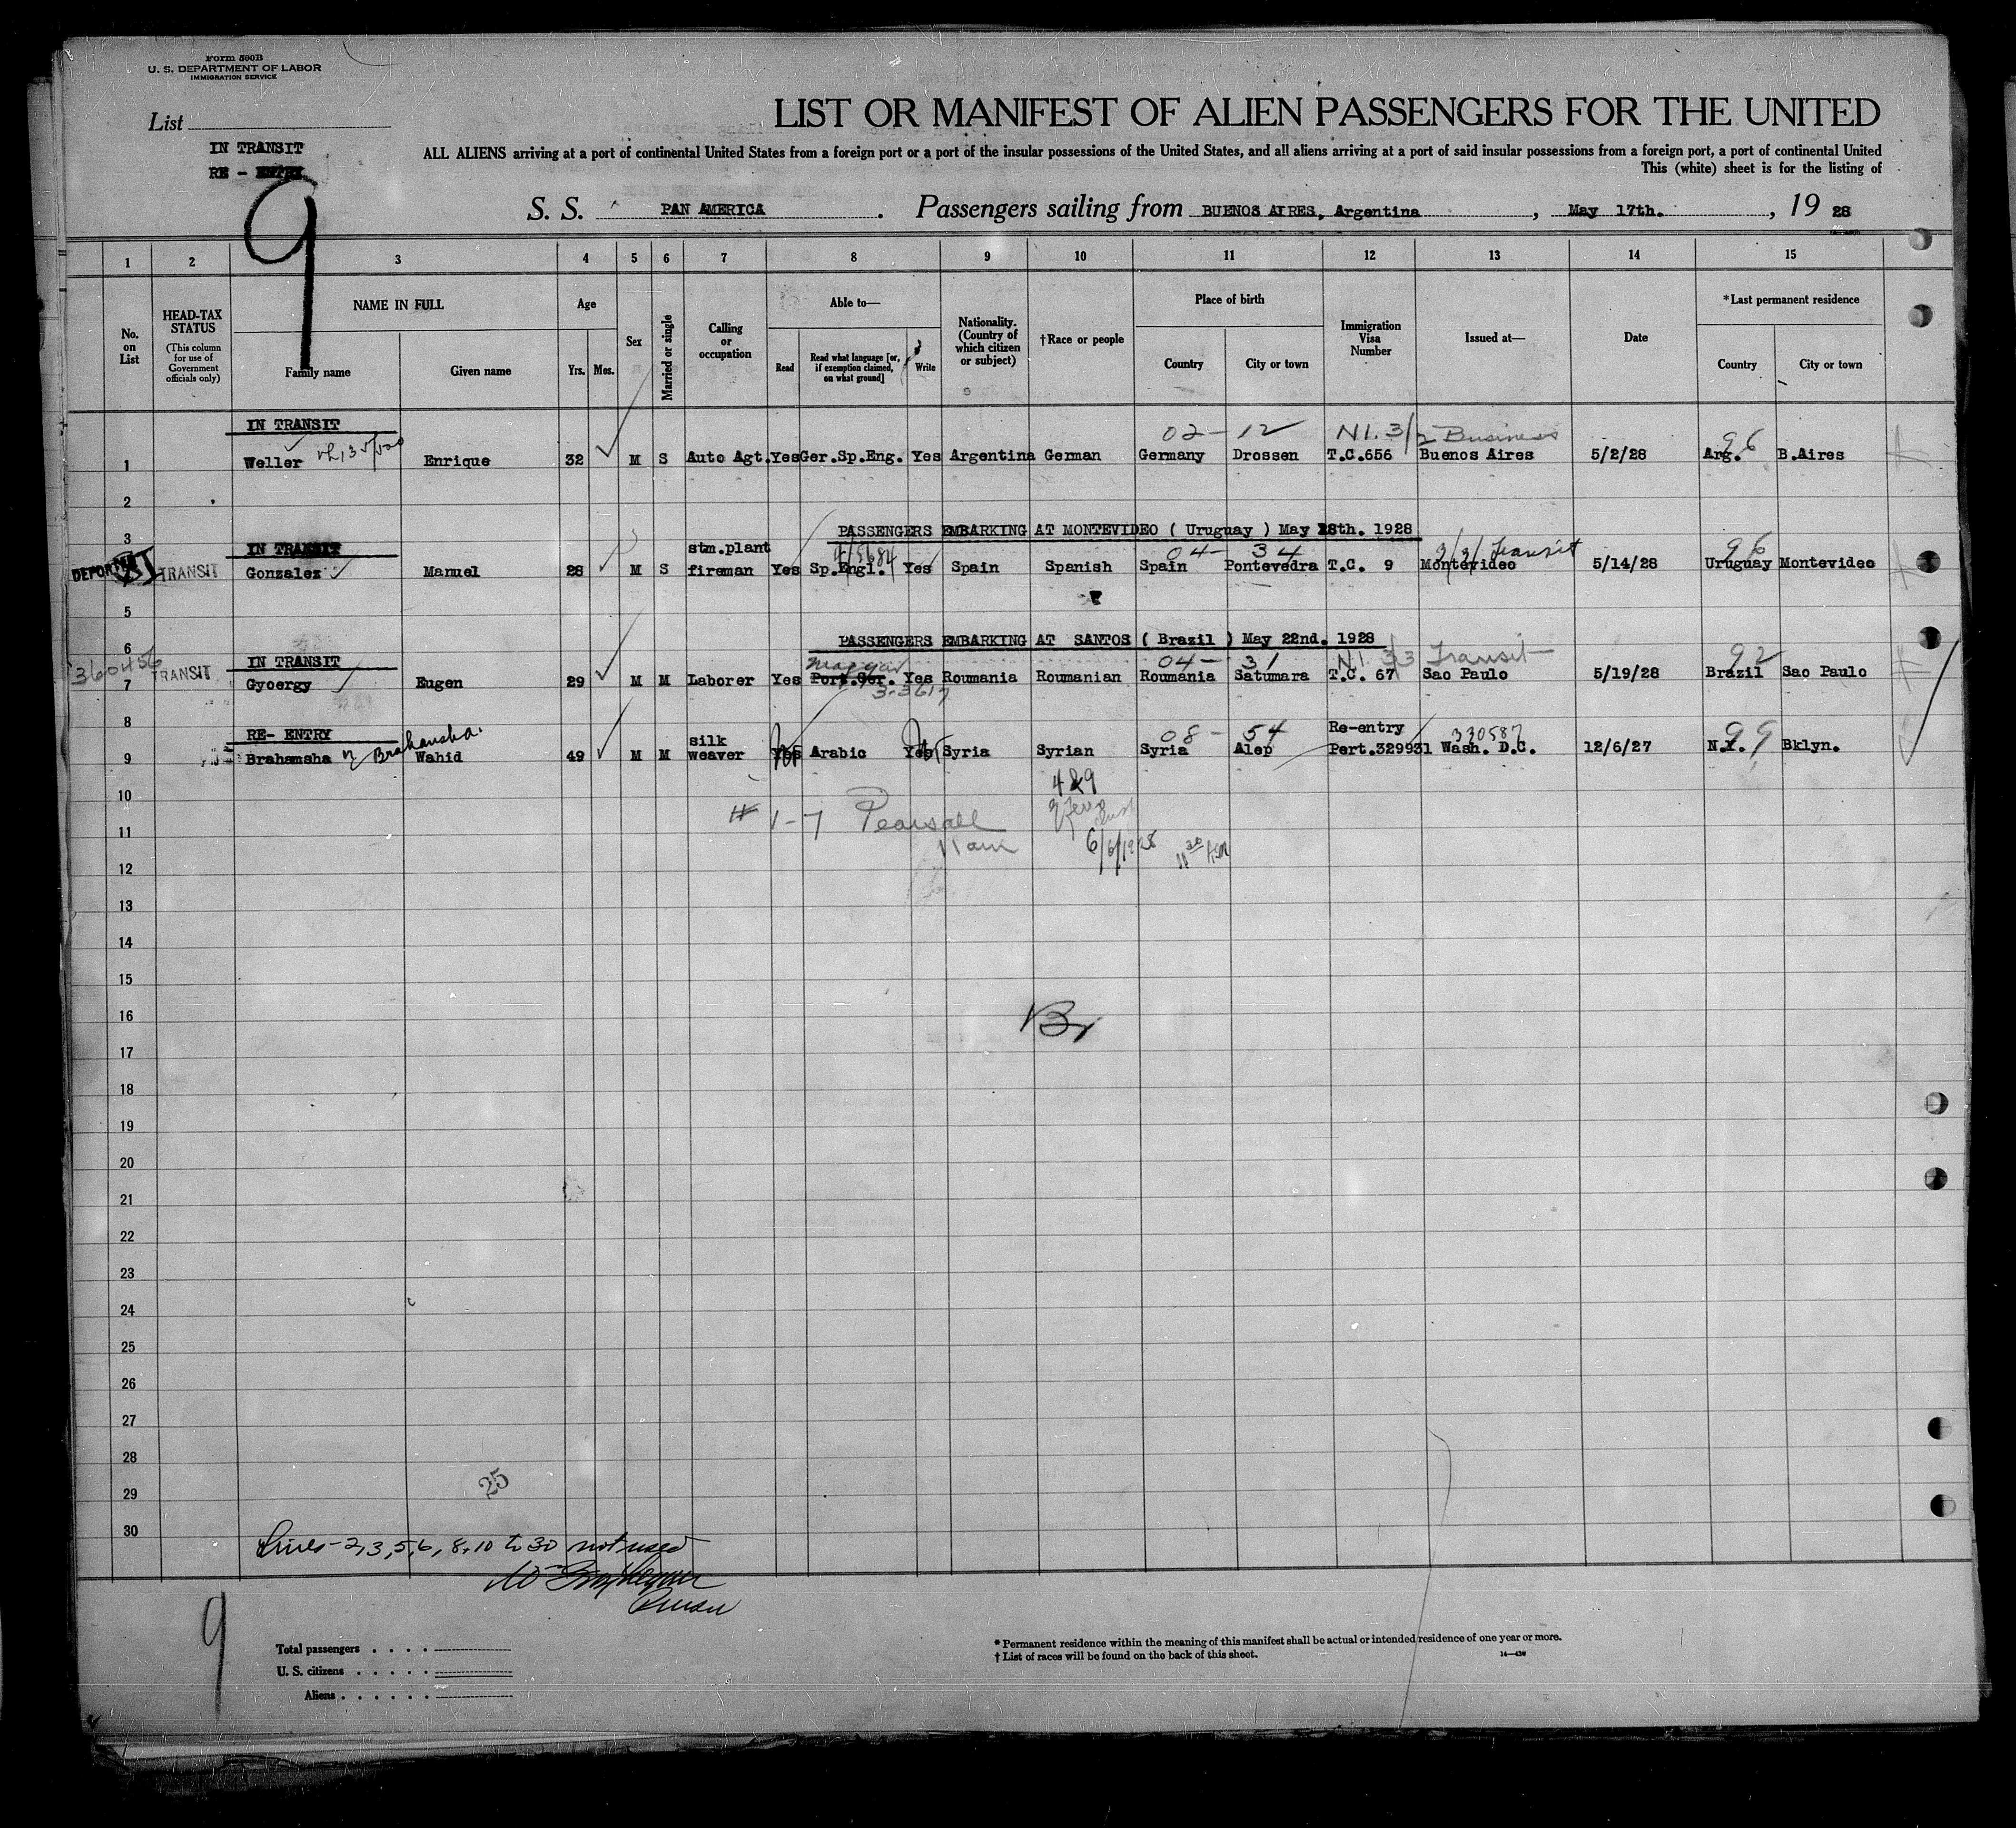 Form 500B
U. S. DEPARTMENT OF LABOR
IMMIGRATION SERVICE
List
IN TRANSIT
RE - ENTRY
9
LIST OR MANIFEST OF ALIEN PASSENGERS FOR THE UNITED
ALL ALIENS arriving at a port of continental United States from a foreign port or a port of the insular possessions of the United States, and all aliens arriving at a port of said insular possessions from a foreign port, a port of continental United
This (white) sheet is for the listing of
S. S. PAN AMERICA. Passengers sailing from BUENOS AIRES, Argentina, May 17th., 19 28
1 2 3 4 5 6 7 8 9 10 11 12 13 14 15
No. on List
HEAD-TAX STATUS
(This column for use of Government officials only)
NAME IN FULL
Family name
Given name
Age
Yrs. Mos.
Sex
Married or single
Calling or occupation
Able to—
Read
Read what language [or, if exemption claimed, on what ground]
Write
Nationality. (Country of which citizen or subject)
†Race or people
Place of birth
Country
City or town
Immigration Visa Number
Issued at—
Date
*Last permanent residence
Country
City or town
IN TRANSIT
02 - 12 N1. 3/2 Business 96
1 Weller Enrique 32 M S Auto Agt. Yes Ger.Sp.Eng. Yes Argentina German Germany Drossen T.C.656 Buenos Aires 5/2/28 Arg. B.Aires
2
PASSENGERS EMBARKING AT MONTEVIDEO ( Uruguay ) May 18th. 1928
3
IN TRANSIT stm.plant 04 - 34 3/3/ Transit 96
DEPORT TRANSIT Gonzalez Manuel 28 M S fireman Yes Sp.Engl. Yes Spain Spanish Spain Pontevedra T.C. 9 Montevideo 5/14/28 Uruguay Montevideo
5
PASSENGERS EMBARKING AT SANTOS ( Brazil ) May 22nd. 1928
6
IN TRANSIT Magyar 04 - 31 N1. 3/3 Transit 92
360456 TRANSIT 7 Gyoergy Eugen 29 M M Laborer Yes Port.Ger. Yes Roumania Roumanian Roumania Satumara T.C. 67 Sao Paulo 5/19/28 Brazil Sao Paulo
3-3617
8
RE- ENTRY silk 08 - 54 Re-entry 330587 99
9 Brahamsha Brahamsha. Wahid 49 M M weaver Yes Arabic Yes Syria Syrian Syria Alep Pert.329931 Wash. D.C. 12/6/27 N.Y. Bklyn.
4&9
10
# 1-7 Pearsall
11
11 am 6/6/1928 11 30 AM
12
13
14
15
16
Br
17
18
19
20
21
22
23
24
25
26
27
28
25
29
30
Lines - 2,3,5,6, 8,10 to 30 not used
Purser
9
Total passengers
U. S. citizens
Aliens
* Permanent residence within the meaning of this manifest shall be actual or intended residence of one year or more.
† List of races will be found on the back of this sheet.